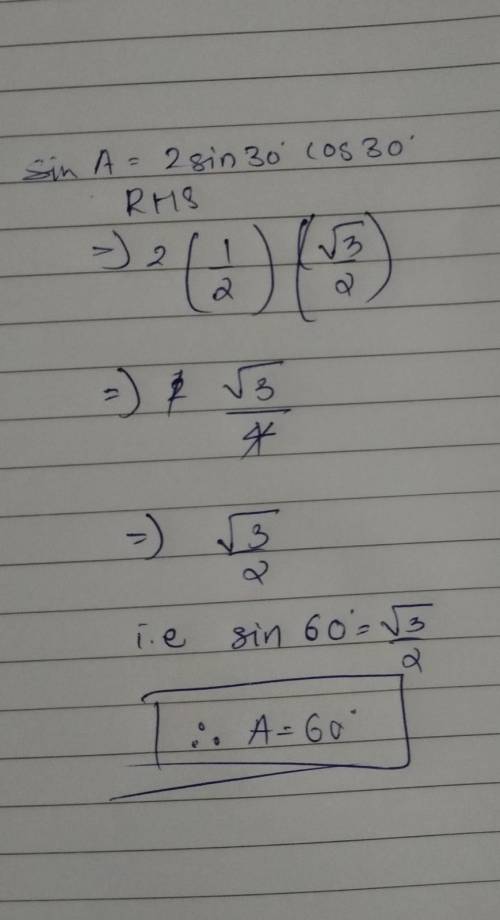 sin A = 2 sin 30° cos 30°
RHS
=) 2 (1/2) (√3/2)
=) 2 √3/4
=) √3/2
i.e sin 60° = √3/2
∴ A = 60°